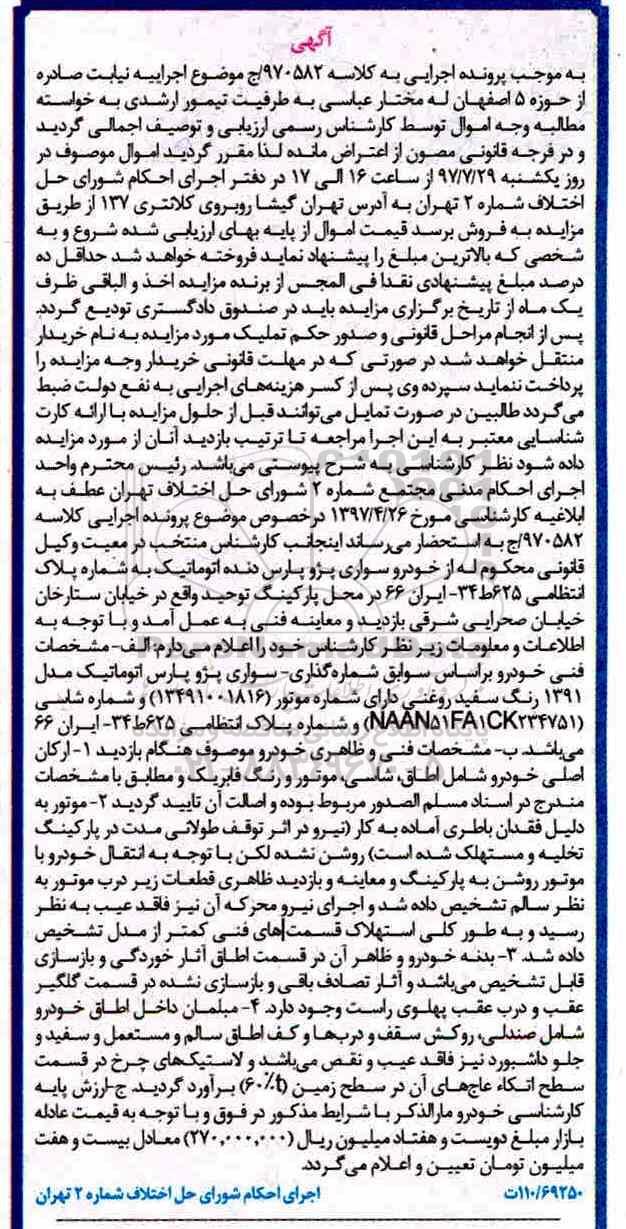 آگهی
به موجب پرونده اجرایی به کلاسه ۹۷۰۵۸۲/ج موضوع اجراییه نیابت صادره
از حوزه ۵ اصفهان له مختار عباسی به طرفیت تیمور ارشدی به خواسته
مطالبه وجه اموال توسط کارشناس رسمی ارزیابی و توصیف اجمالی گردید
و در فرجه قانونی مصون از اعتراض مانده لذا مقرر گردید اموال موصوف در
روز یکشنبه ۹۷/۷/۲۹ از ساعت ۱۶ الی ۱۷ در دفتر اجرای احکام شورای حل
اختلاف شماره ۲ تهران به آدرس تهران گیشا روبروی کلانتری ۱۳۷ از طریق
مزایده به فروش برسد قیمت اموال از پایه بهای ارزیابی شده شروع و به
شخصی که بالاترین مبلغ را پیشنهاد نماید فروخته خواهد شد حداقل ده
درصد مبلغ پیشنهادی نقدا فی المجس از برنده مزایده اخذ و الباقی ظرف
یک ماه از تاریخ برگزاری مزایده باید در صندوق دادگستری تودیع گردد.
پس از انجام مراحل قانونی و صدور حکم تملیک مورد مزایده به نام خریدار
منتقل خواهد شد در صورتی که در مهلت قانونی خریدار وجه مزایده را
پرداخت ننماید سپرده وی پس از کسر هزینه‌های اجرایی به نفع دولت ضبط
می‌گردد طالبین در صورت تمایل می‌توانند قبل از حلول مزایده با ارائه کارت
شناسایی معتبر به این اجرا مراجعه تا ترتیب بازدید آنان از مورد مزایده
داده شود نظر کارشناسی به شرح پیوستی می‌باشد. رئیس محترم واحد
اجرای احکام مدنی مجتمع شماره ۲ شورای حل اختلاف تهران عطف به
ابلاغیه کارشناسی مورخ ۱۳۹۷/۴/۲۶ درخصوص موضوع پرونده اجرایی کلاسه
۹۷۰۵۸۲/ج به استحضار می‌رساند اینجانب کارشناس منتخب در معیت وکیل
قانونی محکوم له از خودرو سواری پژو پارس دنده اتوماتیک به شماره پلاک
انتظامی ۶۲۵ط۳۴- ایران ۶۶ در محل پارکینگ توحید واقع در خیابان ستارخان
خیابان صحرایی شرقی بازدید و معاینه فنی به عمل آمد و با توجه به
اطلاعات و معلومات زیر نظر کارشناس خود را اعلام می‌دارم: الف- مشخصات
فنی خودرو براساس سوابق شماره‌گذاری- سواری پژو پارس اتوماتیک مدل
۱۳۹۱ رنگ سفید روغنی دارای شماره موتور (۱۳۴۹۱۰۰۱۸۱۶) و شماره شاسی
(NAAN۵۱FA۱CK۲۳۴۷۵۱) و شماره پلاک انتظامی ۶۲۵ط۳۴- ایران ۶۶
می‌باشد. ب- مشخصات فنی و ظاهری خودرو موصوف هنگام بازدید ۱- ارکان
اصلی خودرو شامل اطاق، شاسی، موتور و رنگ فابریک و مطابق با مشخصات
مندرج در اسناد مسلم الصدور مربوط بوده و اصالت آن تایید گردید ۲- موتور به
دلیل فقدان باطری آماده به کار (نیرو در اثر توقف طولانی مدت در پارکینگ
تخلیه و مستهلک شده است) روشن نشده لکن با توجه به انتقال خودرو با
موتور روشن به پارکینگ و معاینه و بازدید ظاهری قطعات زیر درب موتور به
نظر سالم تشخیص داده شد و اجرای نیرو محرکه آن نیز فاقد عیب به نظر
رسید و به طور کلی استهلاک قسمت‌های فنی کمتر از مدل تشخیص
داده شد. ۳- بدنه خودرو و ظاهر آن در قسمت اطاق آثار خوردگی و بازسازی
قابل تشخیص می‌باشد و آثار تصادف باقی و بازسازی نشده در قسمت گلگیر
عقب و درب عقب پهلوی راست وجود دارد. ۴- مبلمان داخل اطاق خودرو
شامل صندلی، روکش سقف و درب‌ها و کف اطاق سالم و مستعمل و سفید و
جلو داشبورد نیز فاقد عیب و نقص می‌باشد و لاستیک‌های چرخ در قسمت
سطح اتکاء عاج‌های آن در سطح زمین (۶۰٪t) برآورد گردید. ج-ارزش پایه
کارشناسی خودرو مارالذکر با شرایط مذکور در فوق و با توجه به قیمت عادله
بازار مبلغ دویست و هفتاد میلیون ریال (۲۷۰,۰۰۰,۰۰۰) معادل بیست و هفت
میلیون تومان تعیین و اعلام می‌گردد.
۱۱۰/۶۹۲۵۰ت اجرای احکام شورای حل اختلاف شماره ۲ تهران